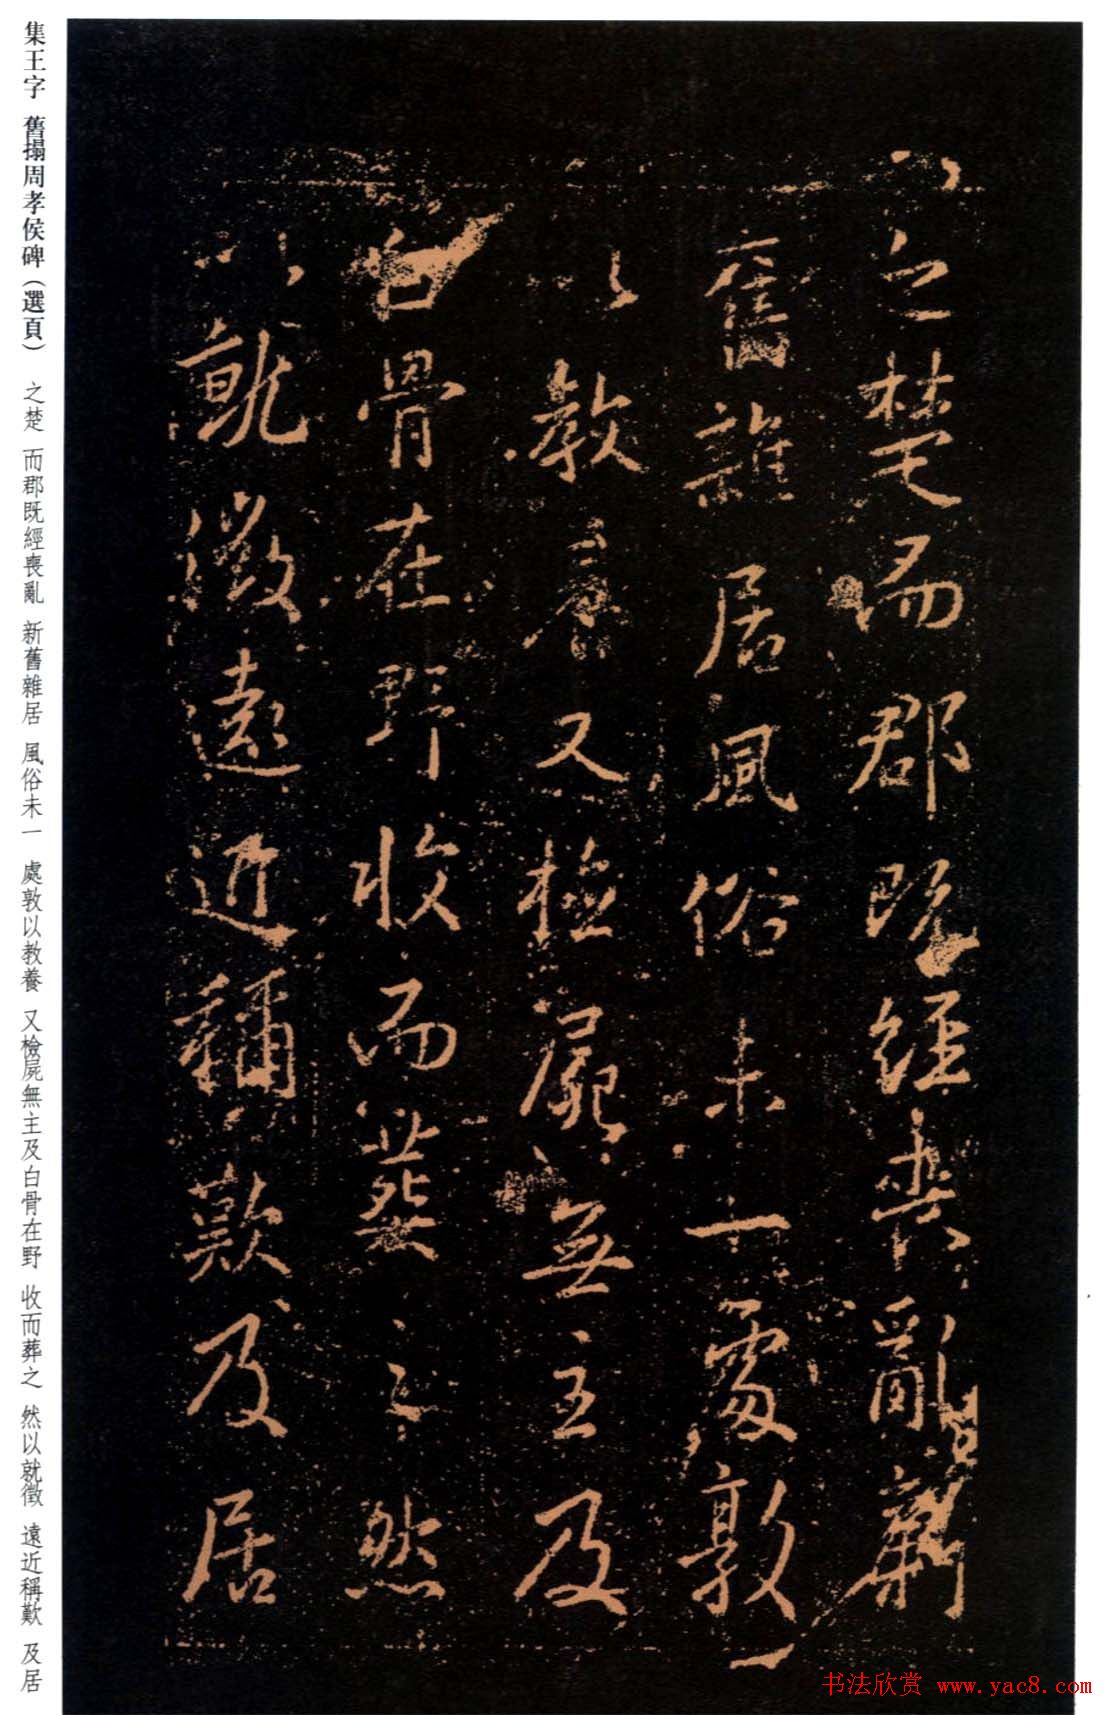 之楚而郡既經喪亂新
舊雜居風俗未一處敦
以教養又檢屍無主及
白骨在野收而葬之然
以就徵遠近稱歎及居
集王字 舊搨周孝侯碑（選頁） 之楚 而郡既經喪亂 新舊雜居 風俗未一 處敦以教養 又檢屍無主及白骨在野 收而葬之 然以就徵 遠近稱歎 及居
书法欣赏 www.yac8.com